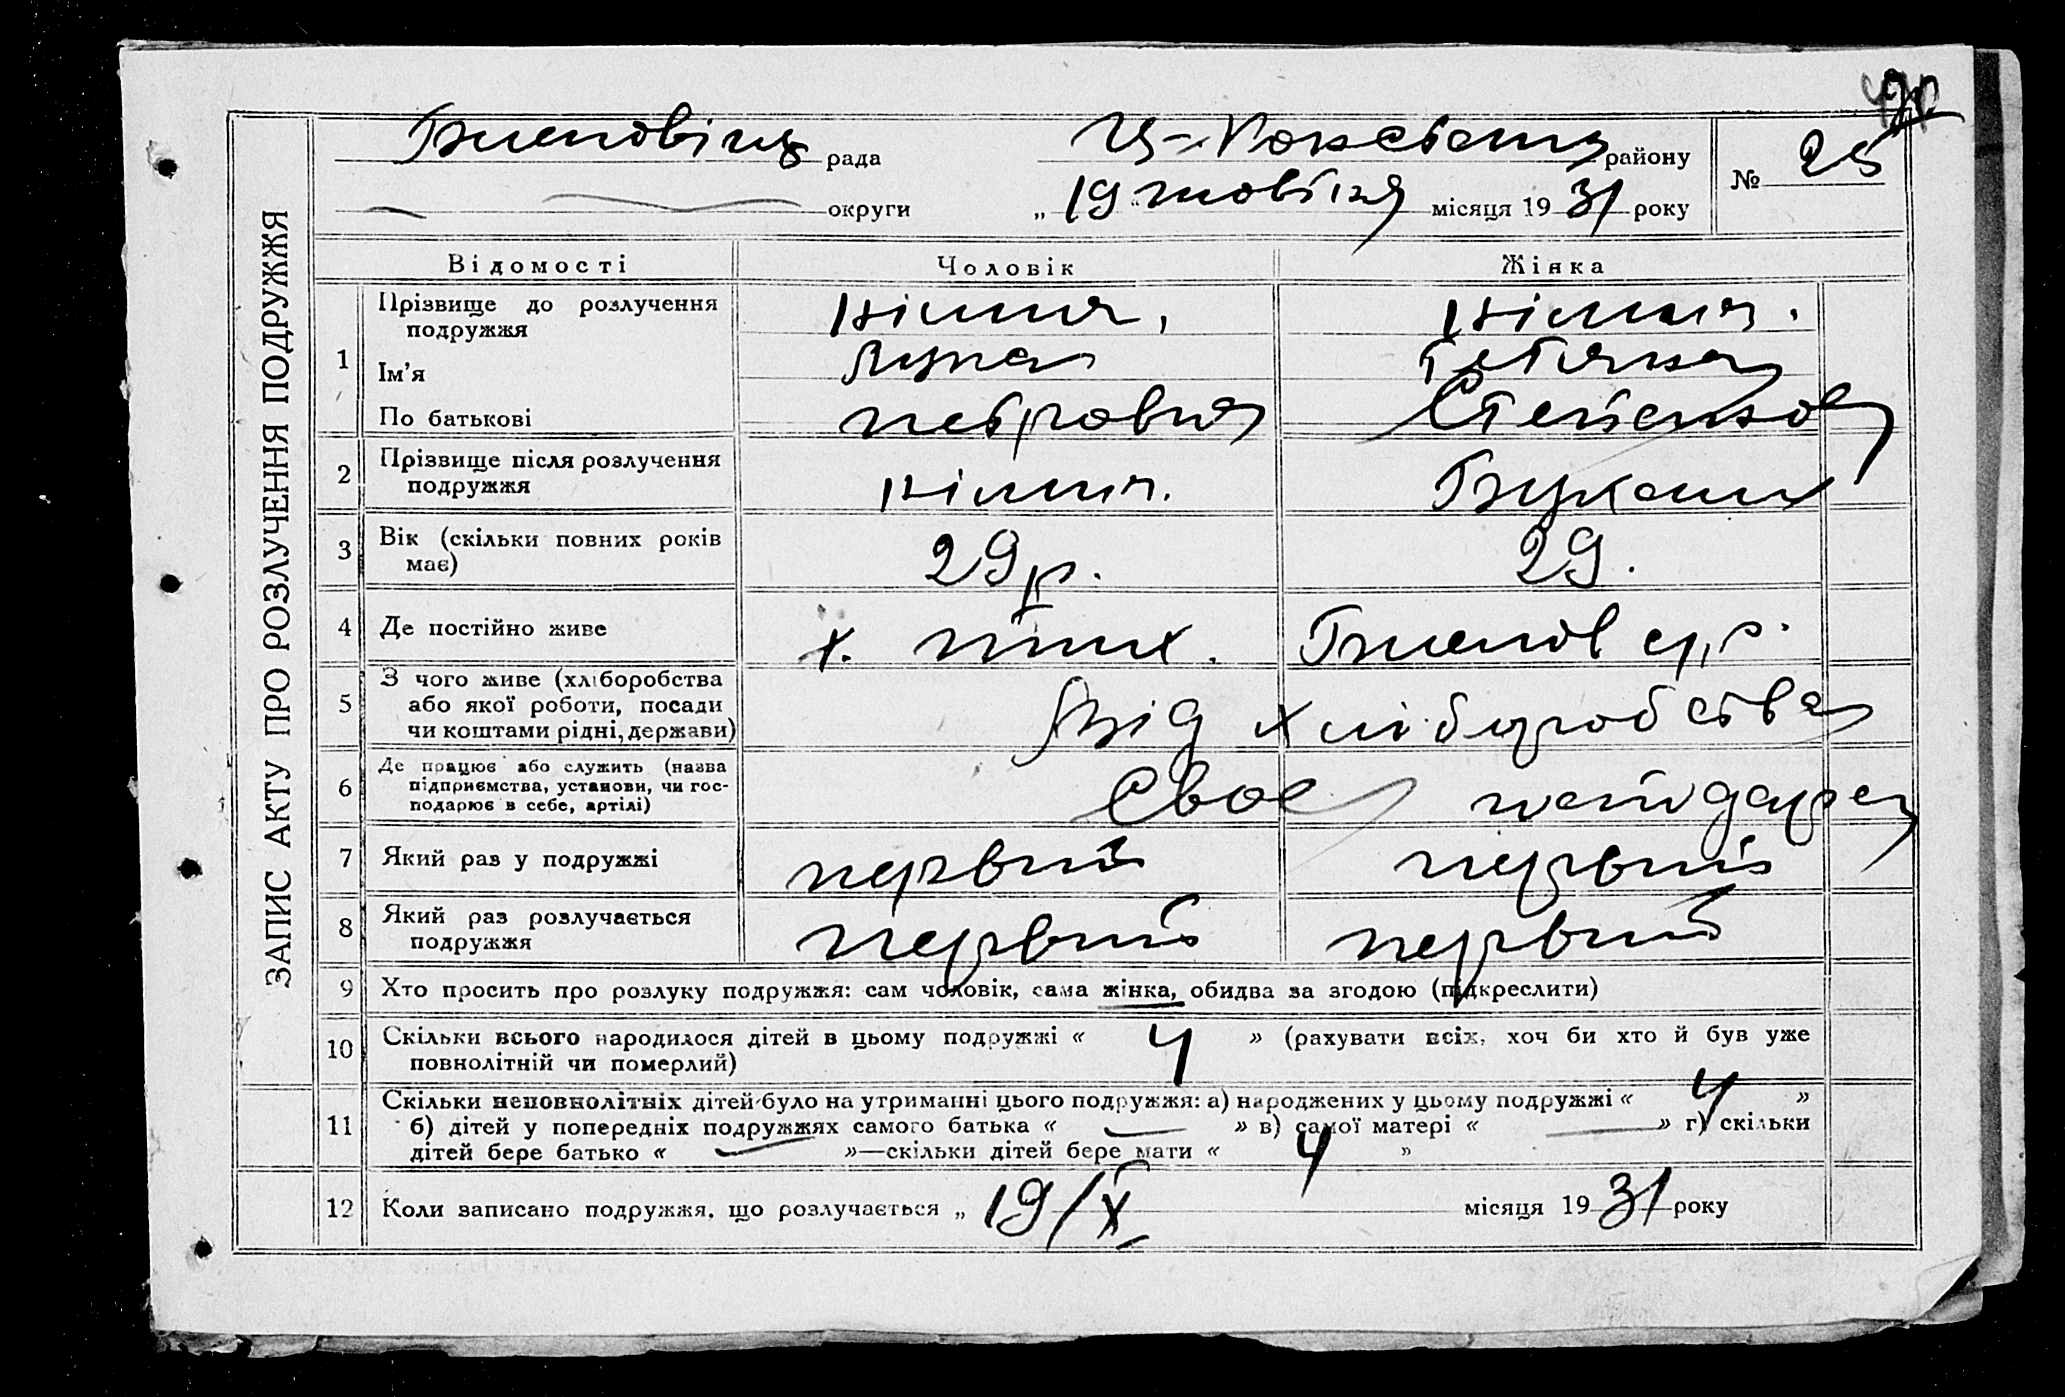 рада района № 25
округи „ 19 " жовтня місяця 19 31 року
ЗАПИС АКТУ ПРО РОЗЛУЧЕННЯ ПОДРУЖЖЯ
Відомості Чоловік Жінка
1 Прізвище до розлучення подружжя
Ім'я Лука Тетяна
По батькові Петрович Степанов
2 Прізвище після розлучення
подружжя
3 Вік (скільки повних років 29 р. 29.
має)
4 Де постійно живе х.
5 З чого живе (хліборобства
або якої роботи, посади Від хліборобства
чи коштами рідні, держави)
6 Де працює або служить (назва
підприємства, установи, чи гос- Своє господарст
подарює в себе, артілі)
7 Який раз у подружжі первий первий
8 Який раз розлучається первий первий
подружжя
9 Хто просить про розлуку подружжя: сам чоловік, сама жінка, обидва за згодою (підкреслити)
10 Скільки всього народилося дітей в цьому подружжі « 4 » (рахувати всіх, хоч би хто й був уже
повнолітній чи померлий)
11 Скільки неповнолітніх дітей було на утриманні цього подружжя: а) народжених у цьому подружжі « 4 »
б) дітей у попередніх подружжях самого батька « — » в) самої матері « — » г) скільки
дітей бере батько « — »—скільки дітей бере мати « 4 »
12 Коли записано подружжя, що розлучається „ 19/X місяця 19 31 року